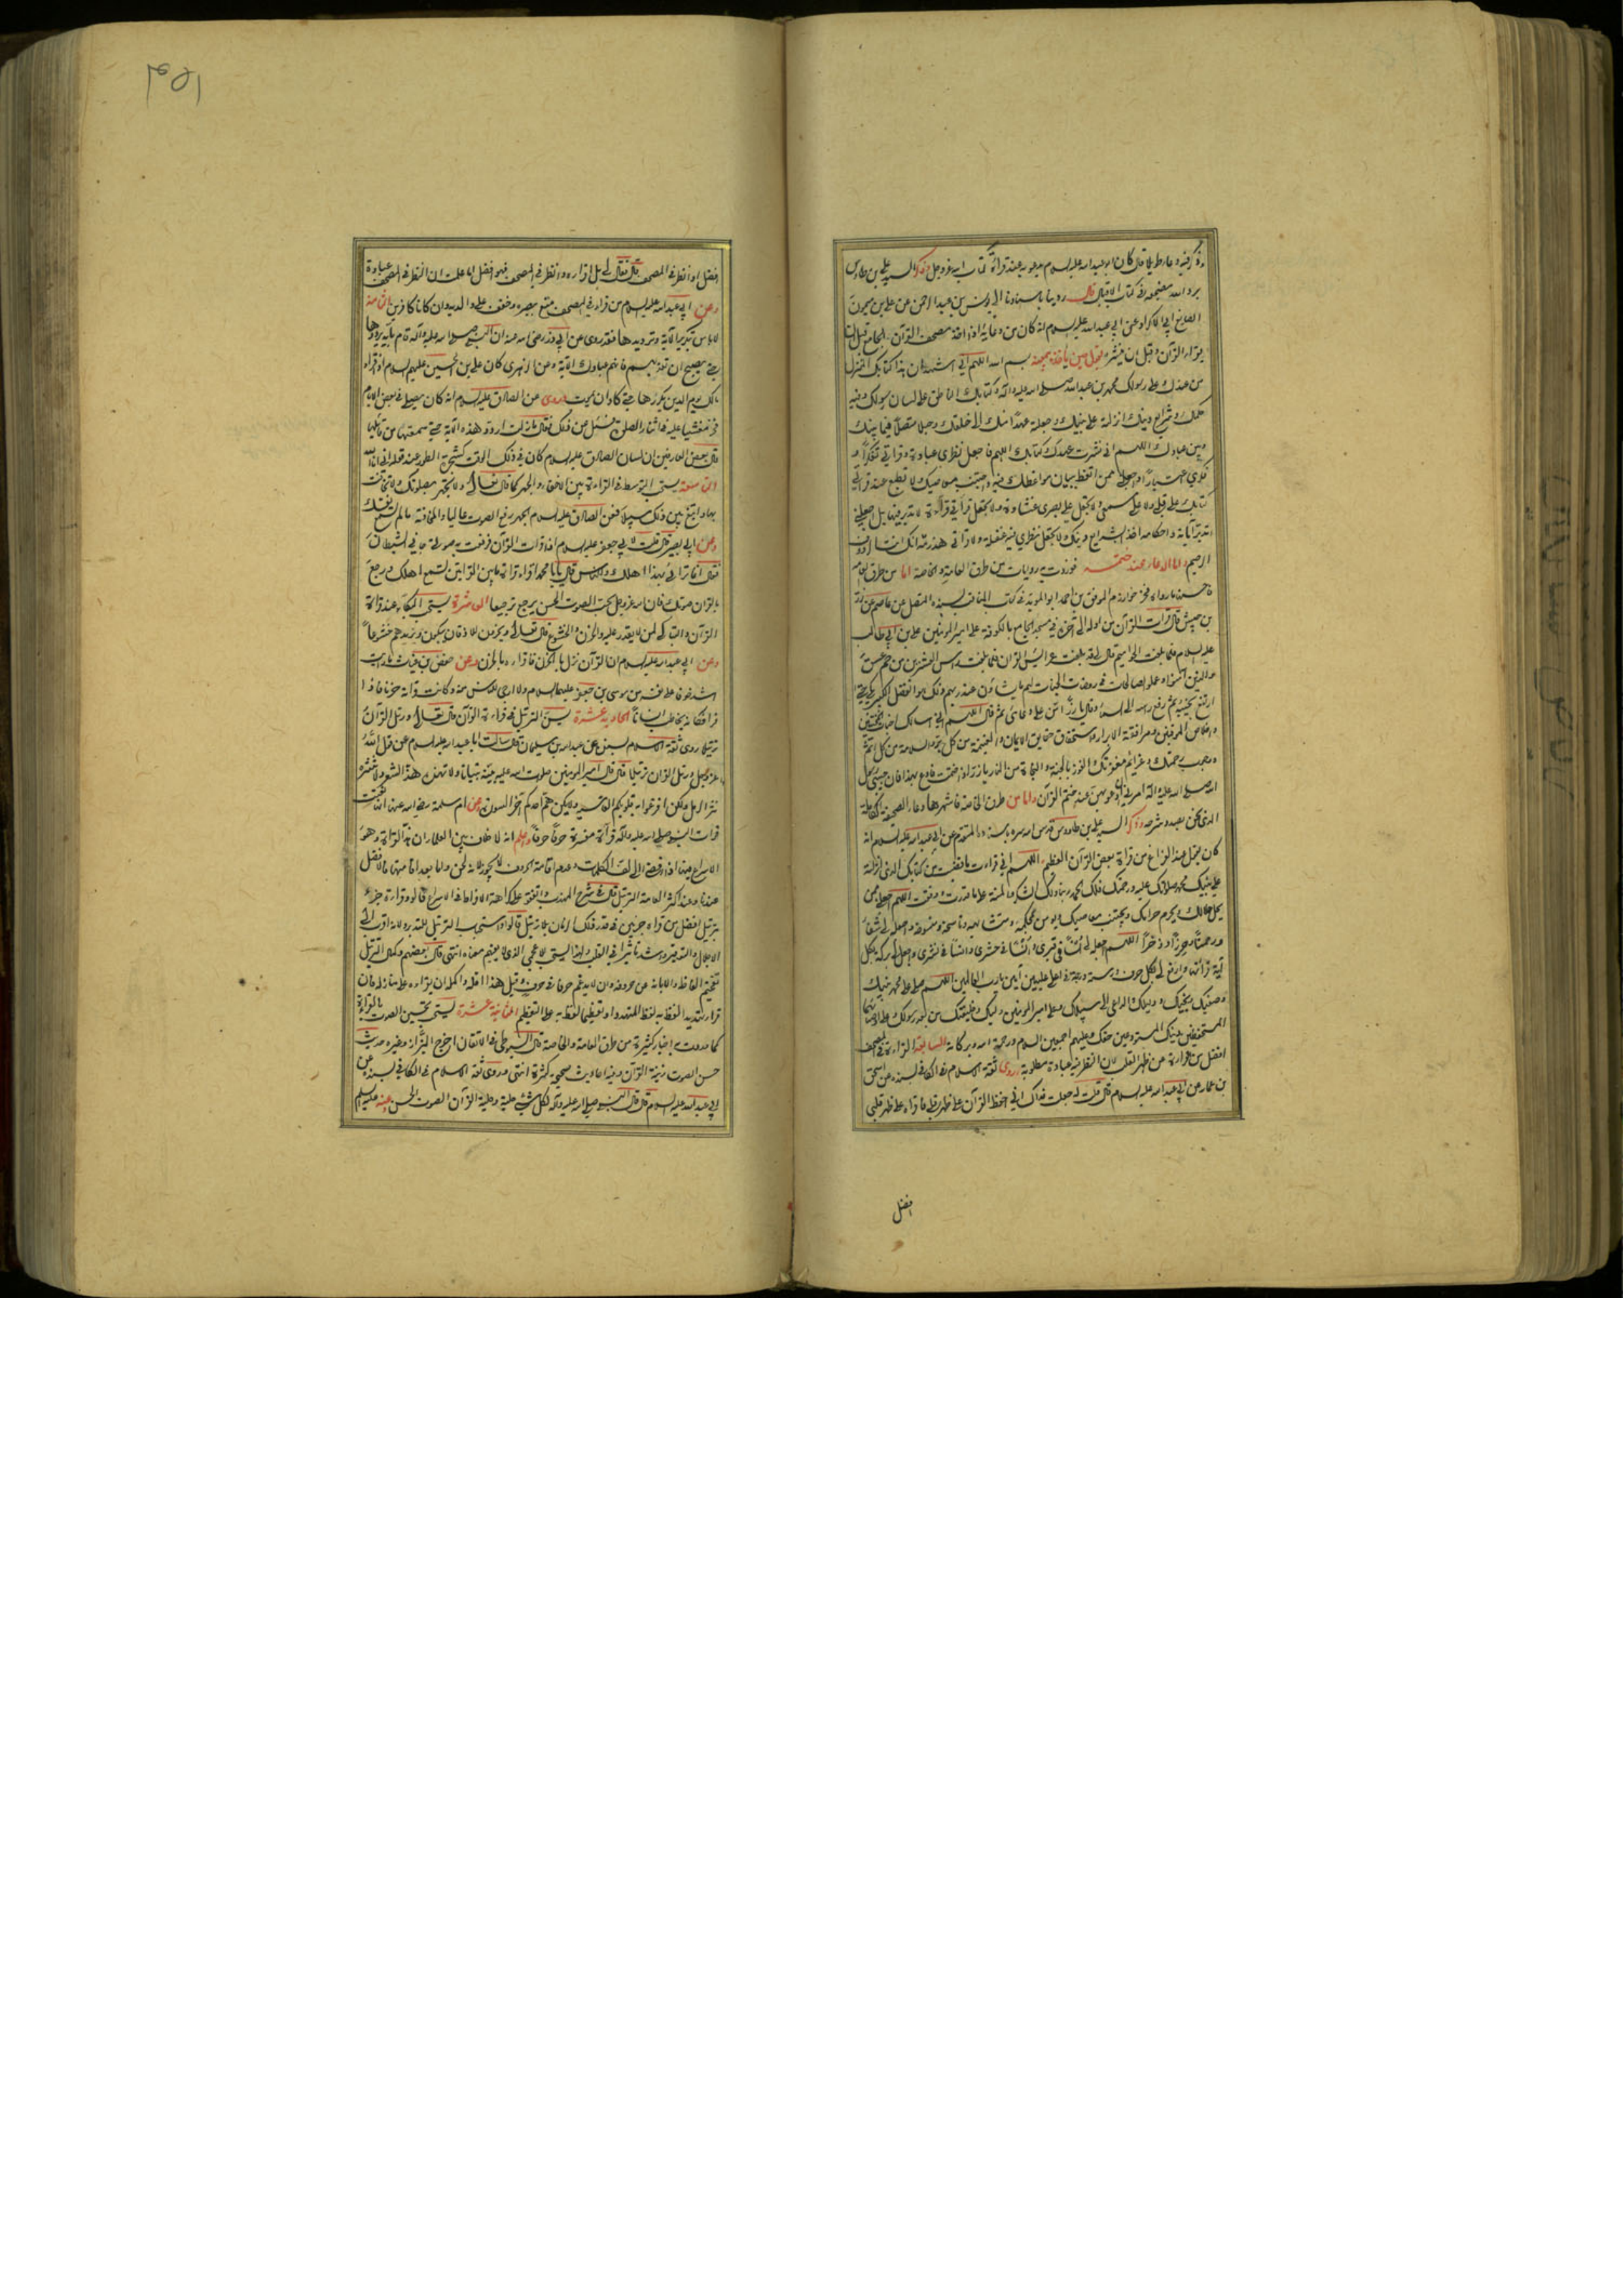 وذكر فيه دعاء طويلا قال كان ابو عبد الله عليه السلام يدعو به عند قراءة كتاب الله عز وجل وذكر السيد علي بن طاوس
برد الله مضجعه في كتاب الاقبال قال روينا باسنادنا الى يونس بن عبد الرحمن عن علي بن ميمون
الصايغ ابي الاكراد عن ابي عبد الله عليه السلام انه كان من دعائه اذا اخذ مصحف القرآن والجامع قبل ان
يقراء القرآن وقبل ان ينشره يقول حين ياخذه بيمينه بسم الله اللهم اني اشهد ان هذا كتابك المنزل
من عندك على رسولك محمد بن عبد الله صلى الله عليه وآله وكتابك الناطق على لسان رسولك وفيه
حكمك وشرايع دينك انزلته على نبيك وجعلته عهدا منك الى خلقك وحبلا متصلا فيما بينك
وبين عبادك اللهم اني نشرت عهدك وكتابك اللهم فاجعل نظري عبادة وقراءتي تفكرا و
فكري اعتبارا واجعلني ممن اتعظ ببيان مواعظك فيه واجتنب معاصيك ولا تطبع عند قراءتي
كتابك على قلبي ولا على سمعي ولا تجعل على بصري غشاوة ولا تجعل قراءتي قراءة لا تدبر فيها بل اجعلني
اتدبر آياته واحكامه آخذا بشرايع دينك ولا تجعل نظري فيه غفلة ولا قراءتي هذرمة انك انت الرؤف
الرحيم واما الدعاء عند ختمه فوردت به روايات من طرق العامة والخاصة اما من طرق العامة
بن حبيش قال قرأت القرآن من اوله الى آخره في مسجد الجامع بالكوفة على امير المؤمنين علي بن ابي طالب
عليه السلام فلما بلغت الحواميم قال لي قد بلغت عرائس القرآن فلما بلغت راس العشرين من حم عسق
والذين آمنوا وعملوا الصالحات في روضات الجنات لهم ما يشاؤن عند ربهم ذلك هو الفضل الكبير بكى حتى
ارتفع نحيبه ثم رفع راسه الى السماء وقال يا زر امن على دعائي ثم قال اللهم اني اسالك اخبات المخبتين
واخلاص الموقنين ومرافقة الابرار واستحقاق حقايق الايمان والغنيمة من كل بر والسلامة من كل اثم
ووجوب رحمتك وعزائم مغفرتك والفوز بالجنة والنجاة من النار يا زر اذا ختمت فادع بهذا فان حبيبي رسول
الله صلى الله عليه وآله امرني ان ادعو بهن عند ختم القرآن واما من طرق الخاصة فاشهرها دعاء الصحيفة الكاملة
الذي نحن بصدد شرحه وذكر السيد علي بن طاووس قدس الله سره باسناده المتقدم عن ابي عبد الله عليه السلام انه
كان يقول عند الفراغ من قراءة بعض القرآن العظيم اللهم اني قرات ما قضيت من كتابك الذي انزلته
على نبيك محمد صلواتك عليه ورحمتك فلك الحمد ربنا ولك الشكر والمنة على ما قدرت ووفقت اللهم اجعلني ممن
يحل حلالك ويحرم حرامك ويجتنب معاصيك ويؤمن بمحكمه ومتشابهه وناسخه ومنسوخه واجعله لي شفاء
ورحمة وحرزا وذخرا اللهم اجعله لي انسا في قبري وانسا في حشري وانسا في نشري واجعل لي بركة بكل
آية قراتها وارفع لي بكل حرف درسته درجة في اعلى عليين آمين يا رب العالمين اللهم صل على محمد نبيك
وصفيك ونجيك ودليلك والداعي الى سبيلك وعلى امير المؤمنين وليك وخليفتك من بعد رسولك وعلى اوصيائهما
المستحفظين دينك المستودعين حقك وعليهم اجمعين السلام ورحمة الله وبركاته السابعة القراءة في المصحف
افضل من القراءة عن ظهر القلب لان النظر فيه عبادة مطلوبة روى ثقة الاسلام في الكافي بسنده عن اسحق
بن عمار عن ابي عبد الله عليه السلام قال قلت له جعلت فداك اني احفظ القرآن على ظهر قلبي فاقراه على ظهر قلبي
افضل
افضل او انظر في المصحف قال فقال لي بل اقراه وانظر في المصحف فهو افضل اما علمت ان النظر في المصحف عبادة
وعن ابي عبد الله عليه السلام من قراء في المصحف متع ببصره وخفف على والديه وان كانا كافرين الثامنة
لا باس بتكرير الآية وترديدها فقد روي عن ابي ذر رضي الله عنه ان النبي صلى الله عليه وآله قام بآية يرددها
حتى يصبح ان تعذبهم فانهم عبادك الآية وعن الزهري كان علي بن الحسين عليهم السلام اذا قراء
مالك يوم الدين يكررها حتى كاد ان يموت وروي عن الصادق عليه السلام انه كان يصلي في بعض الايام
فخر مغشيا عليه في اثناء الصلوة فسئل عن ذلك فقال ما زلت اردد هذه الآية حتى سمعتها من قائلها
قال بعض العارفين ان لسان الصادق عليه السلام كان في ذلك الوقت كشجرة الطور عند قوله اني انا الله
التاسعة يستحب التوسط في القراءة بين الاخفاء والجهر كما قال تعالى ولا تجهر بصلوتك ولا تخافت
بها وابتغ بين ذلك سبيلا فعن الصادق عليه السلام الجهر رفع الصوت عاليا والمخافتة ما لم تسمع نفسك
وعن ابي بصير قال قلت لابي جعفر عليه السلام اذا قرات القرآن فرفعت به صوتي جاءني الشيطان
فقال انما ترائي بهذا اهلك والناس قال يا ابا محمد اقراء قراءة ما بين القرائتين تسمع اهلك ورجع
بالقران صوتك فان الله عز وجل يحب الصوت الحسن يرجع ترجيعا العاشرة يستحب البكاء عند قراءة
القرآن والتباكي لمن لا يقدر عليه والحزن والخشوع قال تعالى ويخرون للاذقان يبكون ويزيدهم خشوعا
وعن ابي عبد الله عليه السلام ان القرآن نزل بالحزن فاقراوه بالحزن وعن حفص بن غياث ما رايت
اشد خوفا على نفسه من موسى بن جعفر عليهما السلام ولا ارجى للناس منه وكانت قراءته حزنا فاذا
قرا فكانه يخاطب انسانا الحادية عشرة يسن الترتيل في قراءة القرآن قال تعالى ورتل القرآن
ترتيلا روى ثقة الاسلام بسنده عن عبد الله بن سليمان قال سالت ابا عبد الله عليه السلام عن قول الله
عز وجل ورتل القران ترتيلا قال قال امير المؤمنين صلوات الله عليه بينه تبيانا ولا تهذه هذ الشعر ولا تنثره
نثر الرمل ولكن افزعوا به قلوبكم القاسية ولا يكن هم احدكم آخر السورة وعن ام سلمة رضي الله عنها انها نعتت
قراءت النبي صلى الله عليه وآله قراءة مفسرة حرفا حرفا واعلم انه لا خلاف بين العلماء ان هذ القراءة وهو
الاسراع فيها اذا افضى الى لف الكلمات وعدم اقامة الحروف لا يجوز لانه لحن واما بعد اقامتها فالافضل
عندنا وعند اكثر العامة الترتيل قال في شرح المهذب واتفقوا على كراهة الافراط في الاسراع قالوا وقراءة جزء
بترتيل افضل من قراءة جزءين في قدر ذلك الزمان بلا ترتيل قالوا واستحباب الترتيل للتدبر ولانه اقرب الى
الاجلال والتوقير واشد تاثيرا في القلب ولهذا يستحب للاعجمي الذي لا يفهم معناه انتهى قال بعضهم وكمال الترتيل
تفخيم الفاظه والابانة عن حروفه وان لا يدغم حرفا في حرف وقيل هذا اقله واكمله ان يقراءه على منازله فان
قراء تهديدا لفظ به لفظ المتهدد او تعظيما لفظ به على التعظيم الثانية عشرة يستحب تحسين الصوت بالقراءة
كما وردت به اخبار كثيرة من طرق العامة والخاصة قال السيوطي في الاتقان اخرج البزاز وغيره حديث
حسن الصوت زينة القرآن وفيه احاديث صحيحة كثيرة انتهى وروى ثقة الاسلام في الكافي بسنده عن
ابي عبد الله عليه السلام قال قال النبي صلى الله عليه وآله لكل شيء حلية وحلية القرآن الصوت الحسن وعنه عليه السلام